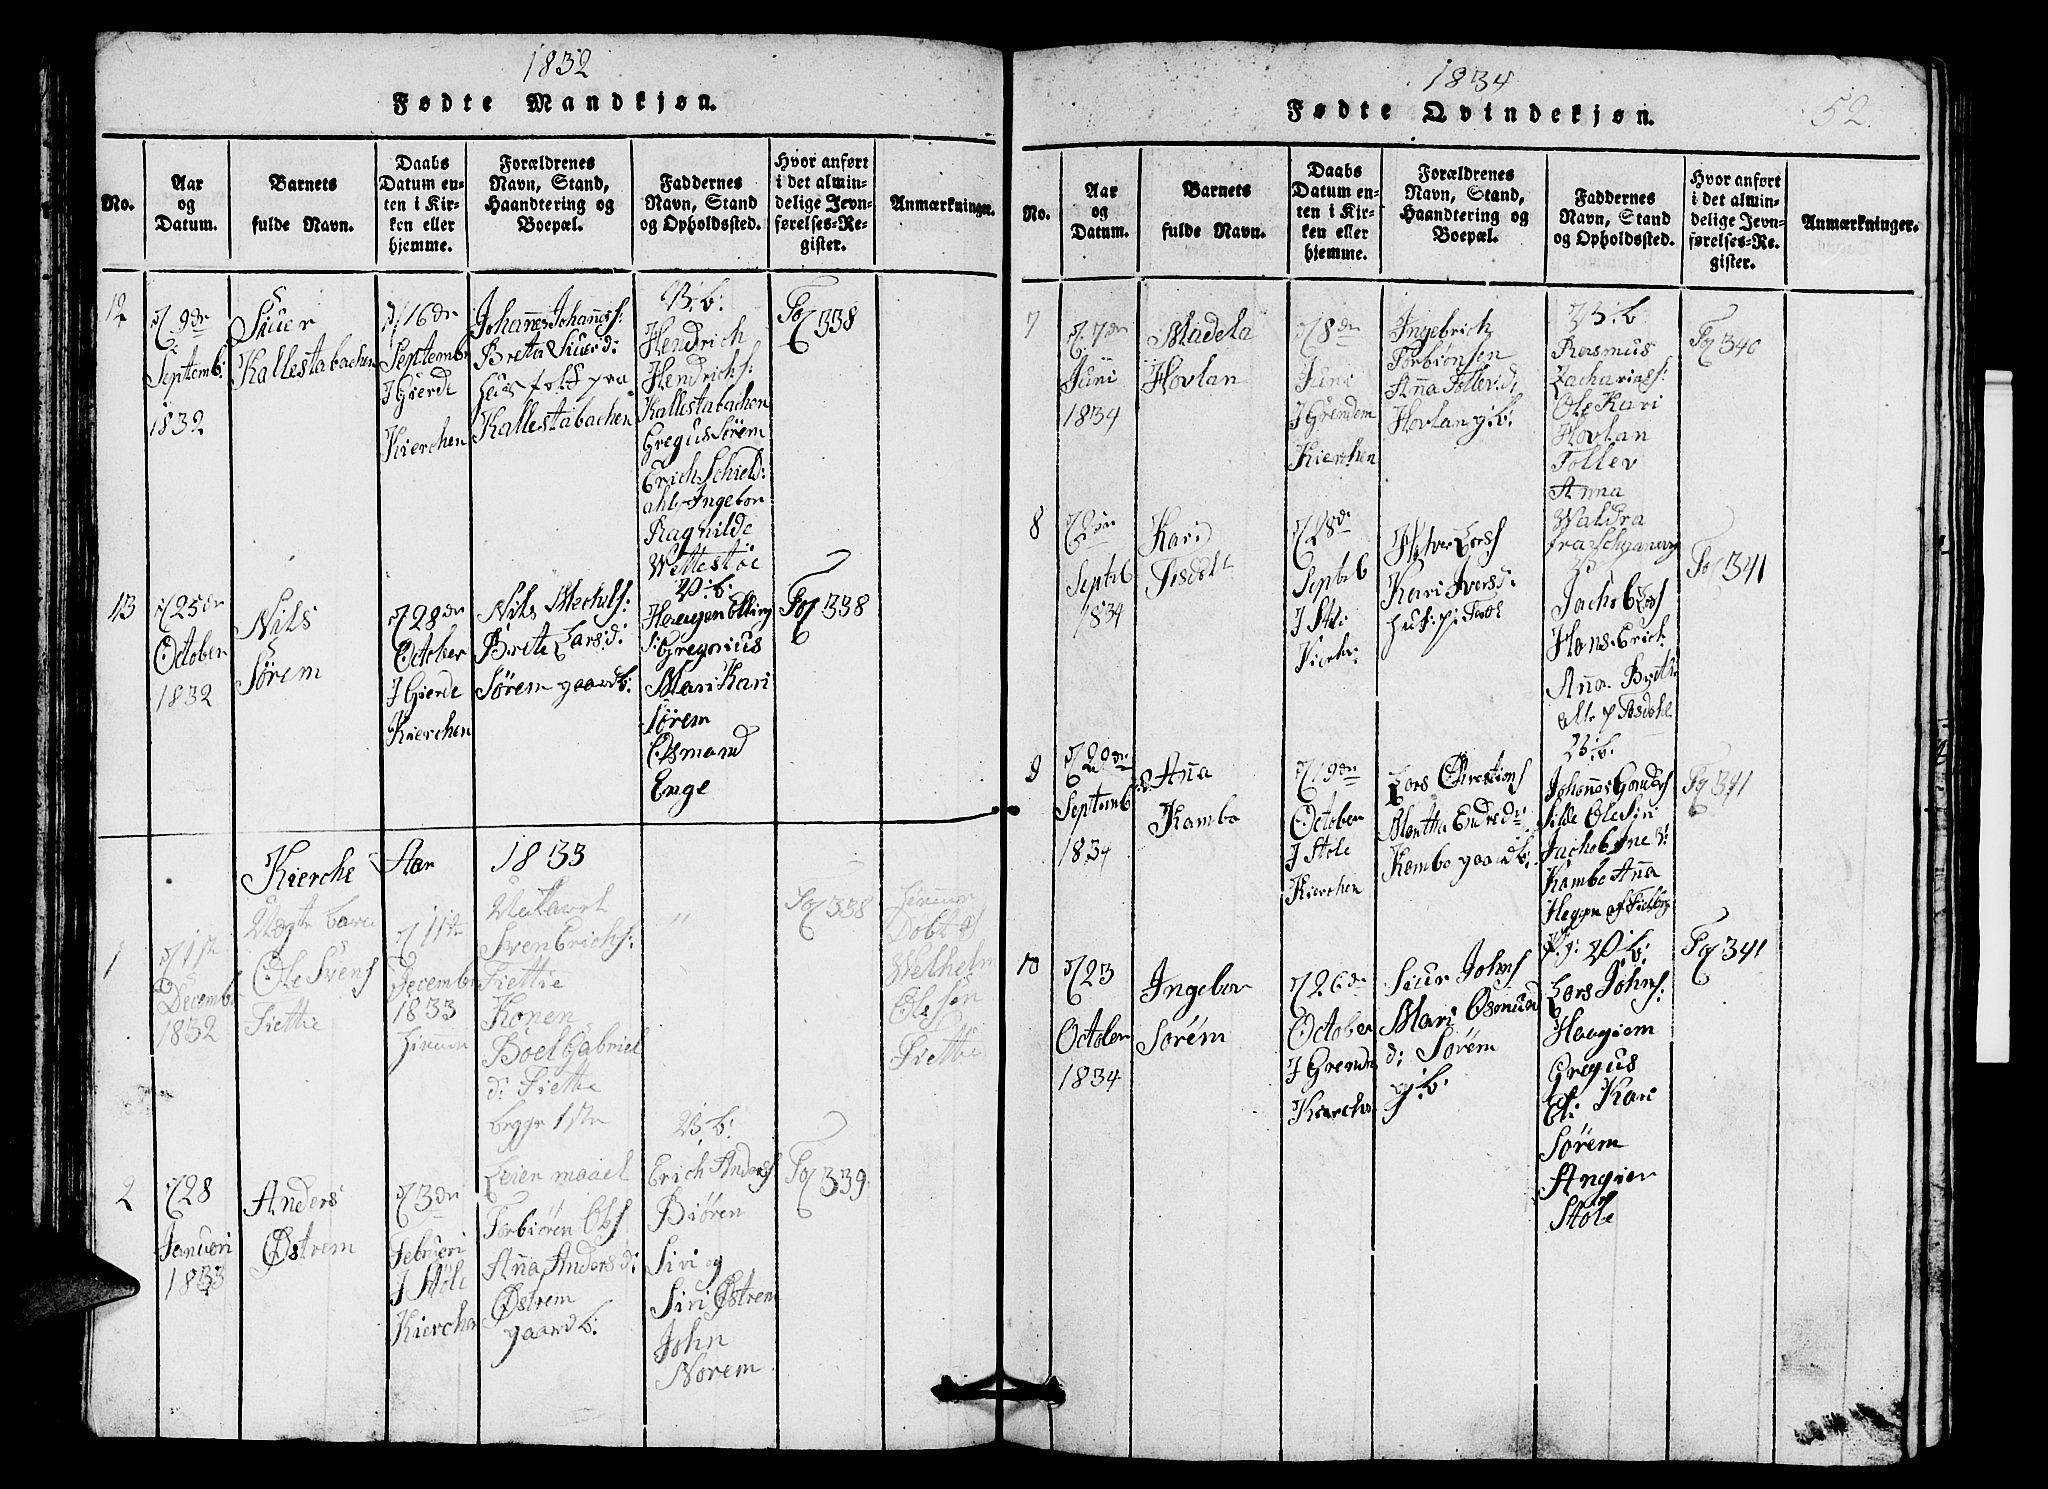 1832
Fødte Mandkjøn.
No.
Aar
og
Datum.
Barnets
fulde Navn.
Daabs
Datum en-
ten i Kir-
ken eller
hjemme.
Forældrenes
Navn, Stand,
Haandtering og
Boepæl.
Faddernes
Navn, Stand
og Opholdssted.
Hvor anført
i det almin-
delige Jevn-
førelses-Re-
gister.
Anmærkninger.
12
9de
Septemb:
1832
Siuer
Kallestabachen
16de
Septembr
I Gierde
Kierchen
Johanes Johanes:
Breta Siuer d:
Huusfolk paa
Kallestabachen
V: b:
Hendrich
Hendrichs:
Kallestabachen
Gregus Sørem
Erich Schields:
ahl Ingebor
Ragnilde
Wettestøe
Fog 338
13
25de
October
1832
Nils
Sørem
28de
October
I Gierde
Kierchen
Nils Mechels:
Brete Lars d:
Sørem gaardb:
V: b:
Haugen Elling
S: Gregorius
Mari Kari
Sørem
Osmand
Enge
Fog 338
Kierche Aar 1833
1
11te
December
1832
Ole Svens
Fiettie
11te
December
1833
Sven Erichs:
Fiettie
Konen
Boel Gabriel
d: Fiettie
begge 1ste
Leiermaael
"
Fog 338
Dobt af
Welhelm
Olesen
Fiettie
2
28
Januari
1833
Anders
Østrem
3de
Februari
I Støle
Kierchen
Torbiøren Ols
Anna Anders d:
Østrem
gaardb:
V: b:
Erich Anders
Biøren
Siri og
Siri Østrem
John
Norem
Fog 339
1834
Fødte Qvindekjøn.
52
No.
Aar
og
Datum.
Barnets
fulde Navn.
Daabs
Datum en-
ten i Kir-
ken eller
hjemme.
Forældrenes
Navn, Stand,
Haandtering og
Boepæl.
Faddernes
Navn, Stand
og Opholdssted.
Hvor anført
i det almin-
delige Jevn-
førelses-Re-
gister.
Anmærkninger.
7
7de
Juni
1834
Madela
Hovlan
8de
Juni
I Grendem
Kierchen
Ingebrich
Torbiønsen
Anna Tollev: d:
Hovlan g: b:
V: b:
Rasmus
Zacharias:
Ole Kari
Hovlan
Tollev
Anna
Waldra
Fog 340
8
Septeb
1834
Kari
28d:
Septeb
I Støle
Kierche
Halver Lars
Kari Ivers d:
Jachob Lars
Hans Erich
Anna Brete
alle p Tesdahl
Fog 341
9
29de
Septemb
1834
Anna
Kambo
19de
October
I Støle
Kierchen
Lars Christians
Martha Endre d:
Kambo gaardb:
V: b:
Johanes
Silde Ole Siu
Jachob
Kambo Anna
Fog 341
10
23
October
1834
Ingebor
Sørem
26de
October
I Grende
Kierche
Siur Johns
Mari Osmund
d: Sørem
g: b:
V: b:
Lars Johns:
Haagiem
Gregus
El: Kari
Sørem
Angier
Støle
Fog 341